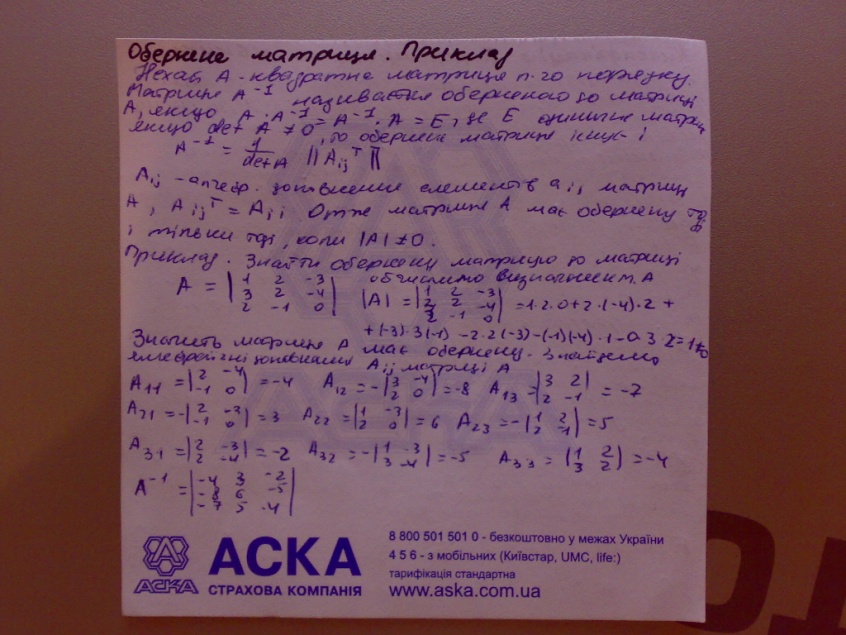 Обернена матриця. Приклад
Нехай А - квадратна матриця n-го порядку.
Матриця A⁻¹ називається оберненою до матриці
А, якщо A · A⁻¹ = A⁻¹ · A = E, де E одинична матриця
якщо det A ≠ 0, то обернена матриця існує і
A⁻¹ = 1/det A ||Aij^T||
Aij - алгебр. доповнення елементів aij матриці
А, Aij^T = Aji Отже матриця А має обернену тоді
і тільки тоді, коли |A| ≠ 0.
Приклад. Знайти обернену матрицю до матриці
обчислимо визначник м. А
A = |1 2 -3; 3 2 -4; 2 -1 0| |A| = |1 2 -3; 2 -4; 2 -1 0| = 1·2·0+2·(-4)·2 +
+(-3)·3(-1) -2·2(-3)-(-1)(-4)·1-0·3·2=1≠0
Значить матриця А має обернену. Знайдемо
алгебраїчні доповнення Aij матриці А
A11 = |2 -4; -1 0| = -4 A12 = -|3 -4; 2 0| = -8 A13 = |3 2; 2 -1| = -7
A21 = -|2 -3; -1 0| = 3 A22 = |1 -3; 2 0| = 6 A23 = -|1 2; 2 -1| = 5
A31 = |2 -3; 2 -4| = -2 A32 = -|1 -3; 3 -4| = -5 A33 = |1 2; 3 2| = -4
A⁻¹ = |-4 3 -2; -8 6 -5; -7 5 -4|
8 800 501 501 0 - безкоштовно у межах України
4 5 6 - з мобільних (Київстар, UMC, life:)
тарифікація стандартна
www.aska.com.ua
АСКА
АСКА
СТРАХОВА КОМПАНІЯ